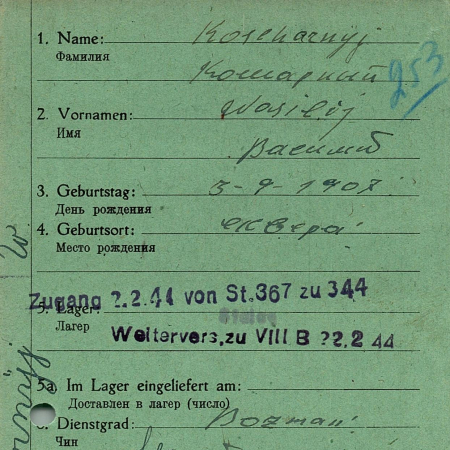 1. Name: Koscharnyj
Фамилия
Кошарный
253
2. Vornamen: Wasilij
Имя
Василий
3. Geburtstag: 3-9-1907
День рождения
4. Geburtsort: сквера
Место рождения
Zugang 2.2.44 von St.367 zu 344
5. Lager:
Stalag
Лагер
Weitervers. zu VIII B 22.2 44
5a. Im Lager eingeliefert am:
Доставлен в лагер (число)
Dienstgrad:
Чин